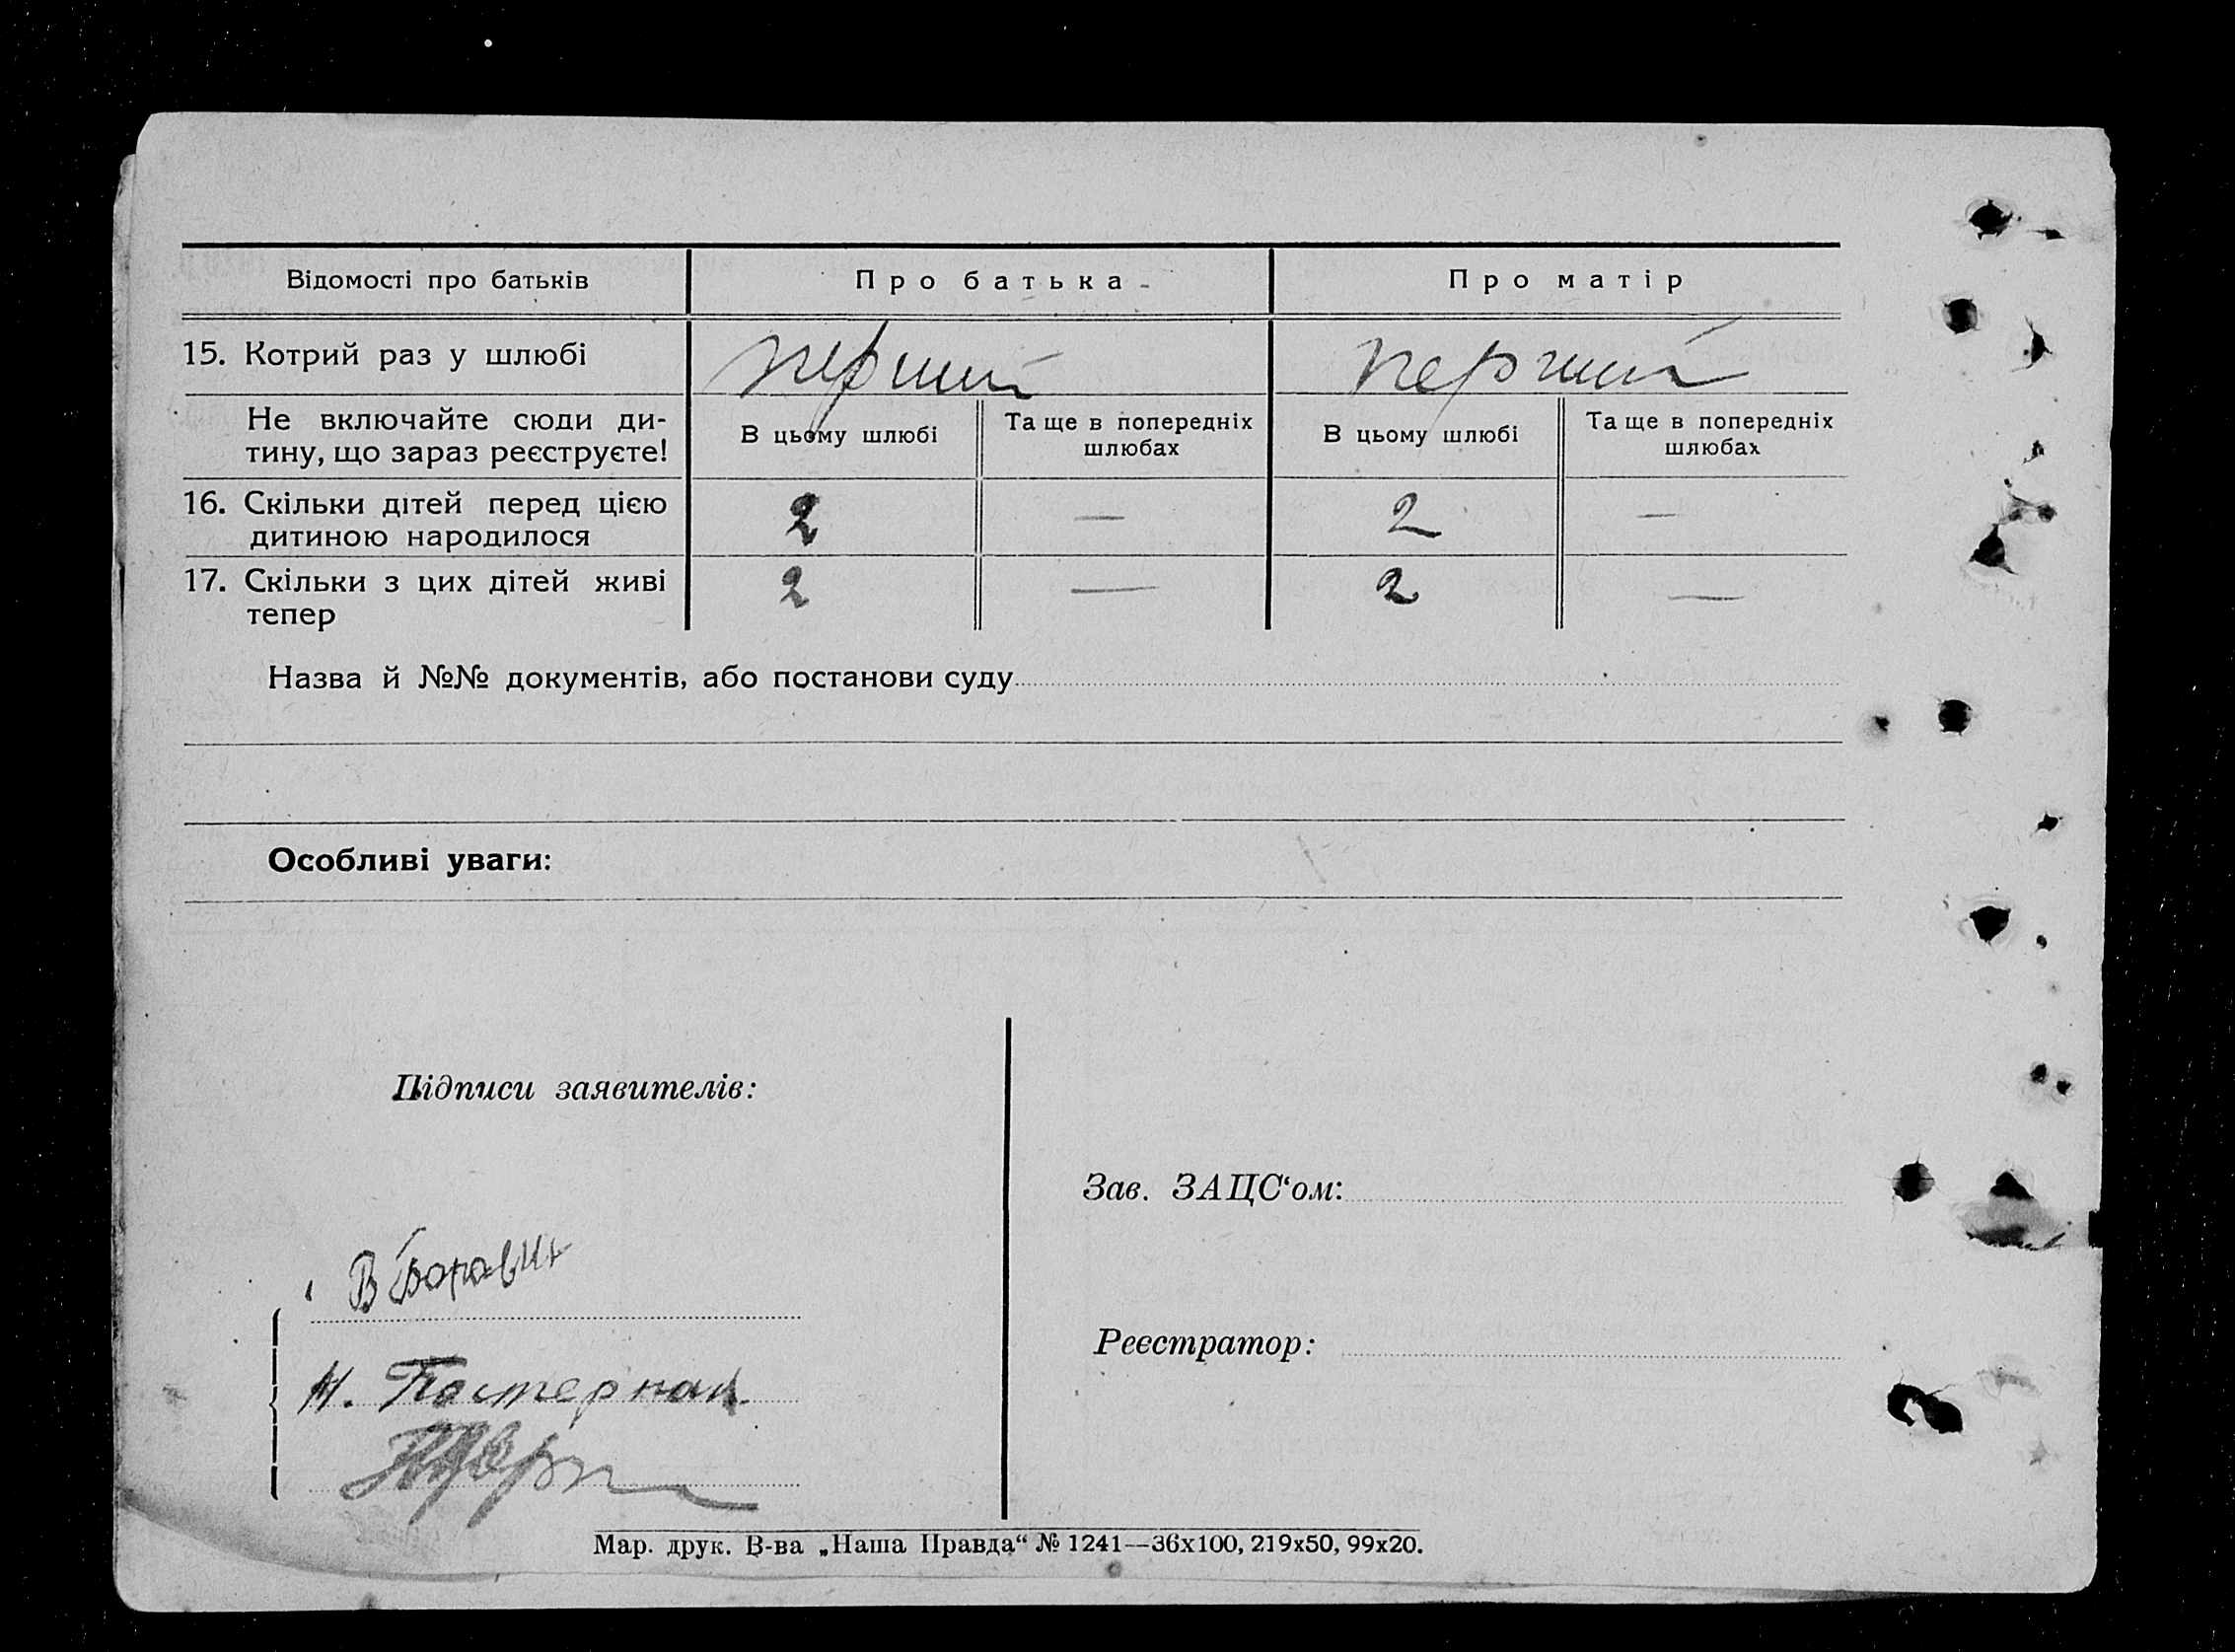 Відомості про батьків
Про батька
Про матір
15. Котрий раз у шлюбі
перший
перший
Не включайте сюди ди-
тину, що зараз реєструєте!
В цьому шлюбі
Та ще в попередніх
шлюбах
В цьому шлюбі
Та ще в попередніх
шлюбах
16. Скільки дітей перед цією
дитиною народилося
2
—
2
—
17. Скільки з цих дітей живі
тепер
2
—
2
—
Назва й №№ документів, або постанови суду
Особливі уваги:
Підписи заявителів:
Зав. ЗАЦС‘ом:
В
Реєстратор:
Н. Пастернак
Мар. друк. В-ва „Наша Правда“ № 1241—36x100, 219x50, 99x20.